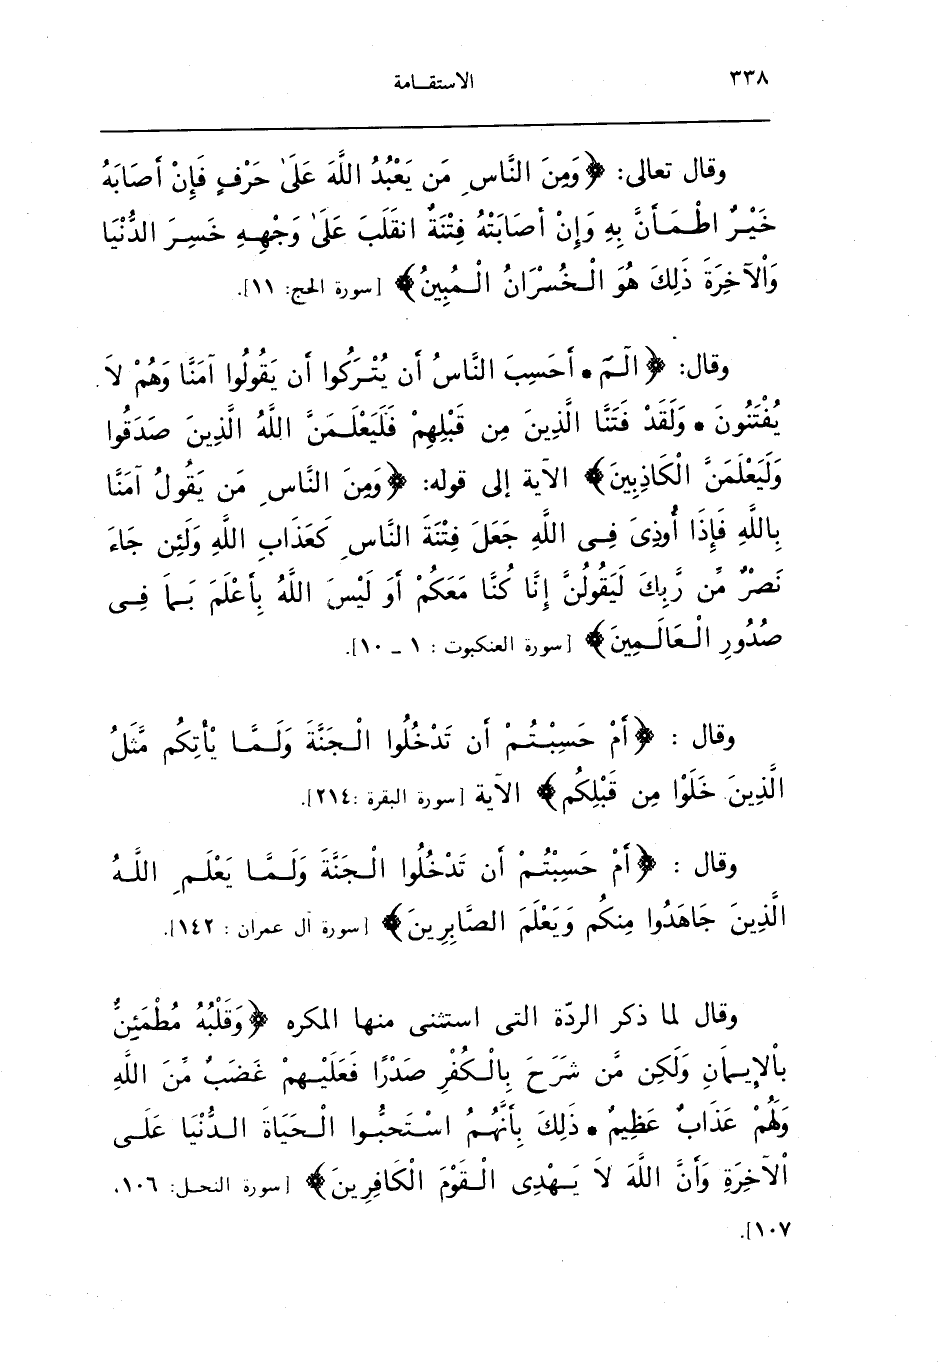 ٣٣٨
الاستقـامة
وقال تعالى: ﴿وَمِنَ النَّاسِ مَن يَعْبُدُ اللَّهَ عَلَىٰ حَرْفٍ فَإِنْ أصَابَهُ
خَيْـرٌ اطْـمَـأنَّ بِهِ وَإِنْ أصَابَتْهُ فِتْنَةٌ انقَلَبَ عَلَىٰ وَجْهِـهِ خَسِـرَ الدُّنْيَا
وَاْلآخِرَةَ ذَلِكَ هُوَ الْـخُسْرَانُ الْـمُبِينُ﴾ [سورة الحج: ١١].
وقال: ﴿الٓـمٓ • أحَسِبَ النَّاسُ أن يُتْـرَكُوا أن يَقُولُوا آمَنَّا وَهُمْ لاَ
يُفْتَنُونَ • وَلَقَدْ فَتَنَّا الَّذِينَ مِن قَبْلِهِمْ فَلَيَعْلَـمَنَّ اللَّهُ الَّذِينَ صَدَقُوا
وَلَيَعْلَمَنَّ الْكَاذِبِينَ﴾ الآية إلى قوله: ﴿وَمِنَ النَّاسِ مَن يَقُولُ آمَنَّا
بِاللَّهِ فَإِذَا أُوذِىَ فِـى اللَّهِ جَعَلَ فِتْنَةَ النَّاسِ كَعَذَابِ اللَّهِ وَلَئِن جَاءَ
نَصْرٌ مِّن رَّبِكَ لَيَقُولُنَّ إِنَّا كُنَّا مَعَكُمْ أوَ لَيْسَ اللَّهُ بِأعْلَمَ بَـمَا فِـى
صُدُورِ الْـعَالَـمِينَ﴾ [سورة العنكبوت : ١ ـ ١٠].
وقال : ﴿أمْ حَسِبْـتُـمْ أن تَدْخُلُوا الْـجَنَّةَ وَلَـمَّـا يْأتِكُم مَّثَلُ
الَّذِينَ خَلَوْا مِن قَبْلِكُم﴾ الآية [سورة البقرة :٢١٤].
وقال : ﴿أمْ حَسِبْتُـمْ أن تَدْخُلُوا الْـجَنَّةَ وَلَـمَّـا يَعْلَـمِ اللَّـهُ
الَّذِينَ جَاهَدُوا مِنكُم وَيَعْلَمَ الصَّابِرِينَ﴾ [سورة آل عمران : ١٤٢].
وقال لما ذكر الردّة التى استثنى منها المكره ﴿وَقَلْبُهُ مُطْمَئِنٌّ
بِاْلإِيـمَانِ وَلَكِن مَّن شَرَحَ بِالْـكُفْرِ صَدْرًا فَعَلَيْـهِمْ غَضَبٌ مِّنَ اللَّهِ
وَلَهُمْ عَذَابٌ عَظِيمٌ • ذَلِكَ بِأنَّهُـمُ اسْـتَحبُّـوا الْـحَيَاةَ الـدُّنْيَا عَلَـى
اْلآخِرَةِ وَأنَّ اللَّهَ لاَ يَـهْدِى الْـقَوْمَ الْكَافِرِينَ﴾ [سورة النحـل: ١٠٦،
١٠٧].